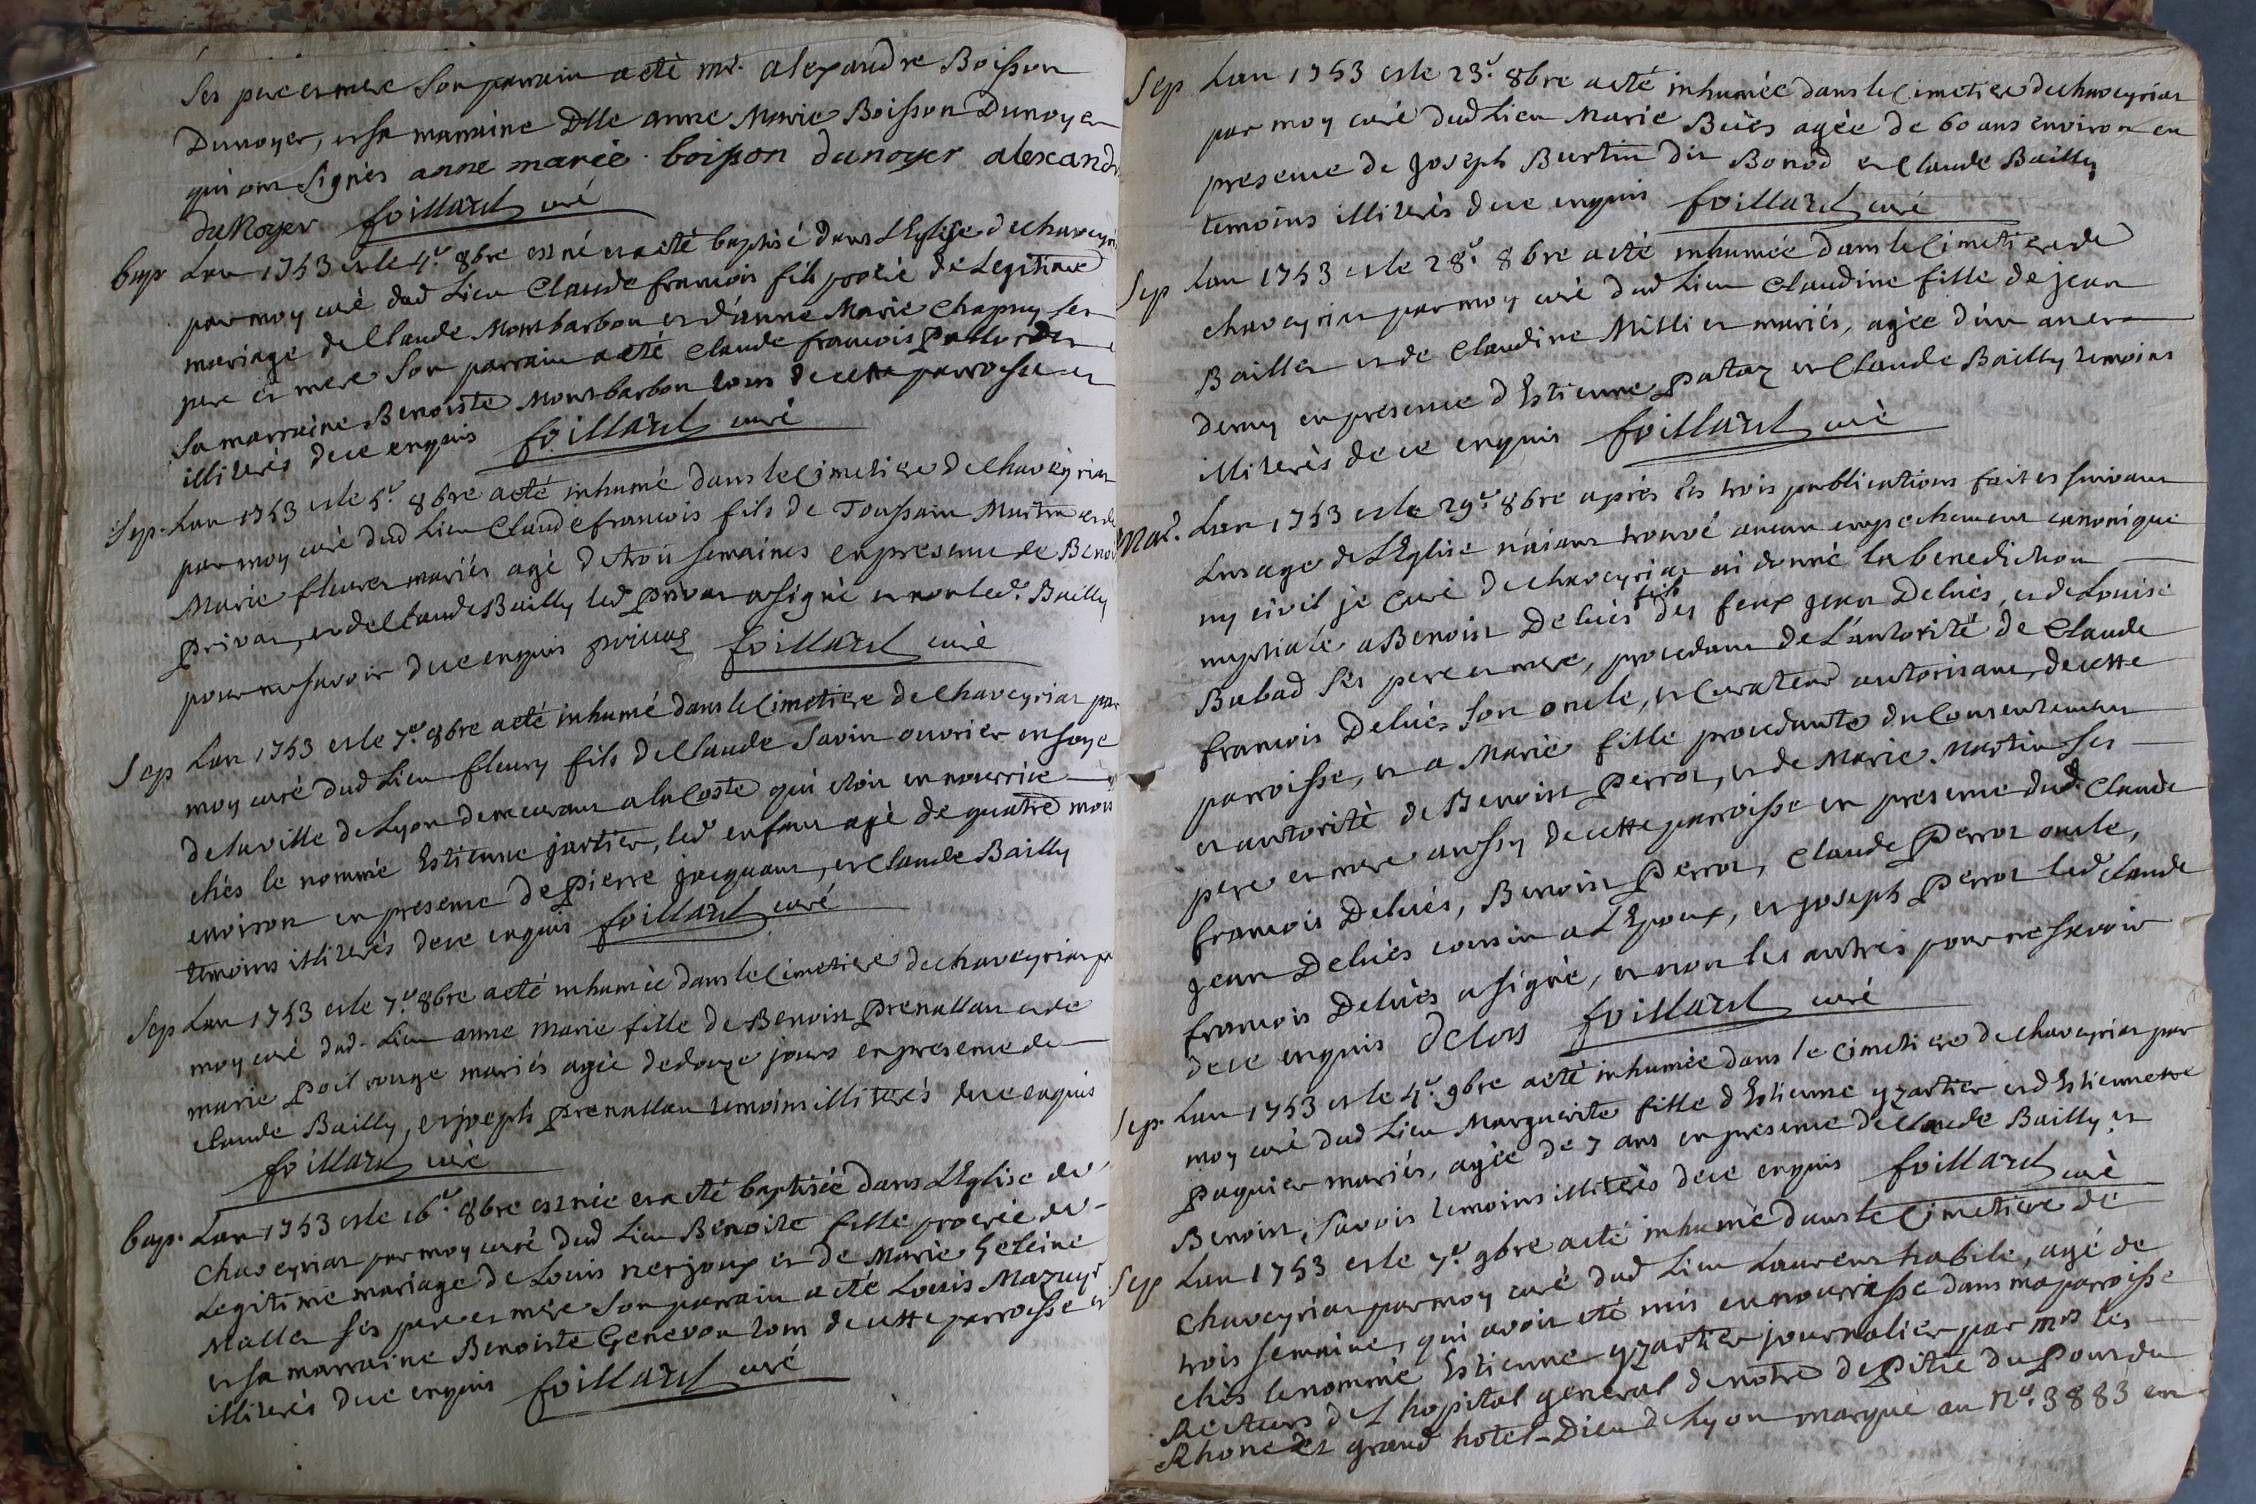 Ses pere et mere son parrain a eté mr. alexandre Boisson
Dunoyer, et sa marraine Dlle anne Marie Boisson Dunoyer
qui ont signés anne marie boisson dunoyer alexandr
du Noyer foillard curé
bapt Lan 1753 et le 4e. 8bre est né et a eté baptisé dans L'Eglise de chaveyria
par moy curé dud Lieu Claude francois fils proéé de Legitime
mariage de Claude Montbarbon et d'anne Marie Chapuy ses
pere et mere son parrain a eté Claude francois
sa marraine Benoiste Montbarbon tous de cette parroisse et
illiterés de ce enquis foillard curé
Sep. Lan 1753 et le 5e 8bre a eté inhumé dans le Cimetiere de Chaveyriat
par moy curé dud Lieu Claude francois fils de Toussain Martin et de
Marie fleuret mariés agé de trois semaines en presence de Benoi
privat, et de Claude Bailly led privat a signé et non led. Bailly
pour ne savoir de ce enquis privat foillard curé
Sep Lan 1753 et le 7e. 8bre a eté inhumé dans le Cimetiere de Chaveyriat par
moy curé dud Lieu fleury fils de Claude Savin ouvrier en soye
de la ville de Lyon demeurant a la Coste qui etoit en nourrice
chés le nommé Estienne jartier, led enfant agé de quatre mois
environ en presence de Pierre jacquant, et Claude Bailly
temoins illiterés de ce enquis foillard curé
Sep Lan 1753 et le 7e. 8bre a eté inhumée dans le Cimetiere de chaveyriat p
moy curé dud. Lieu anne Marie fille de Benoist Prenallan et de
marie Poil rouge mariés agée de douze jours en presence de
claude Bailly, et joseph Prenallan temoins illiterés de ce enquis
foillard curé
bap. Lan 1753 et le 16e. 8bre est née et a eté baptisée dans L'Eglise de
chaveyriat par moy curé dud Lieu Benoite fille proéée de
Legitime mariage de Louis nerjoux et de Marie heleine
Mallet ses pere et mere son parrain a eté Louis Mazuyr
et sa marraine Benoiste Genevon tous de cette parroisse et
illiterés de ce enquis foillard curé
Sep Lan 1753 et le 23e. 8bre a eté inhumée dans le Cimetiere de chaveyriat
par moy curé dud Lieu Marie Buès agée de 60 ans environ en
presence de joseph Burtin dit Bonod et Claude Bailly
temoins illiterés de ce enquis foillard curé
Sep Lan 1753 et le 28e. 8bre a eté inhumée dans le Cimetiere de
chaveyriat par moy curé dud Lieu Claudine fille de jean
Baillet et de Claudine Milliet mariés, agée d'un an et
demy en presence d'Estienne Pataz et Claude Bailly temoins
illiterés de ce enquis foillard curé
Mar. Lan 1753 et le 29e 8bre aprés les trois publications faites suivant
Lusage de L'Eglise n'aiant trouvé aucun empechement canonique
ny civil je Curé de chaveyriat ai donné la benediction
nuptiale a Benoist Delués fils des feux jean Delués, et de Louise
Babad ses pere et mere, procedant de L'autorité de Claude
francois Delués son oncle, et Curateur autorisant, de cette
parroisse, et a Marie fille procedante du Consentement
et autorité de Benoist Perrot, et de Marie Martin ses
pere et mere aussy de cette parroisse en presence dud. Claude
francois Delués, Benoist Perrot, Claude Perrot oncle,
jean Delués cousin a L'Epoux, et joseph Perrot led Claude
francois Delués a signé, et non les autres pour ne savoir
de ce enquis foillard curé
Sep. Lan 1753 et le 4e. 9bre a eté inhumée dans le Cimetiere de chaveyriat par
moy curé dud Lieu Marguerite fille d'Estienne yzartier et d'Estiennette
paquier mariés, agée de 7 ans en presence de Claude Bailly, et
Benoist, Savoir temoins illiterés de ce enquis foillard curé
Sep Lan 1753 et le 7e. 9bre a eté inhumé dans le Cimetiere de
chaveyriat par moy curé dud Lieu Laurens habile, agé de
trois semaine, qui avoit eté mis en nourrisse dans ma parroisse
chés le nommé Estienne yzartier journalier par mrs les
Recteurs de L'hopital general de notre de Pitié du Pont du
Rhone et grand hotel-Dieu de Lyon marqué au No. 3883 en